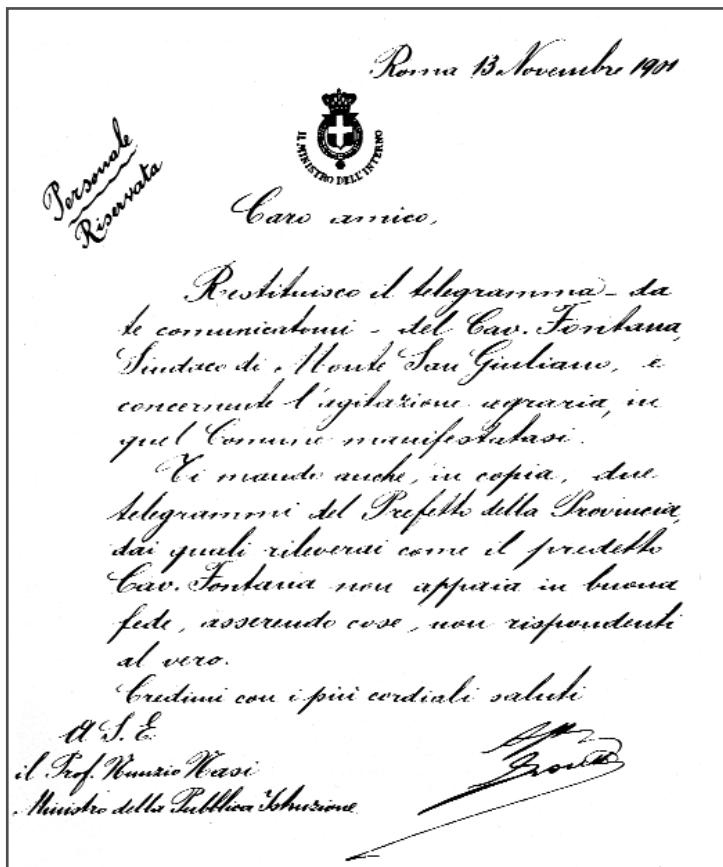 Roma 13 Novembre 1901
IL MINISTRO DELL'INTERNO
Personale
Riservata
Caro amico,
Restituisco il telegramma - da
te comunicatomi - del Cav. Fontana,
Sindaco di Monte San Giuliano, e
concernente l'agitazione agraria, in
quel Comune manifestatasi.
Ti mando anche, in copia, due
telegrammi del Prefetto della Provincia,
dai quali rileverai come il predetto
Cav. Fontana non appaia in buona
fede, asserendo cose, non rispondenti
al vero.
Credimi con i più cordiali saluti
A S. E.
il Prof. Nunzio Nasi
Ministro della Pubblica Istruzione